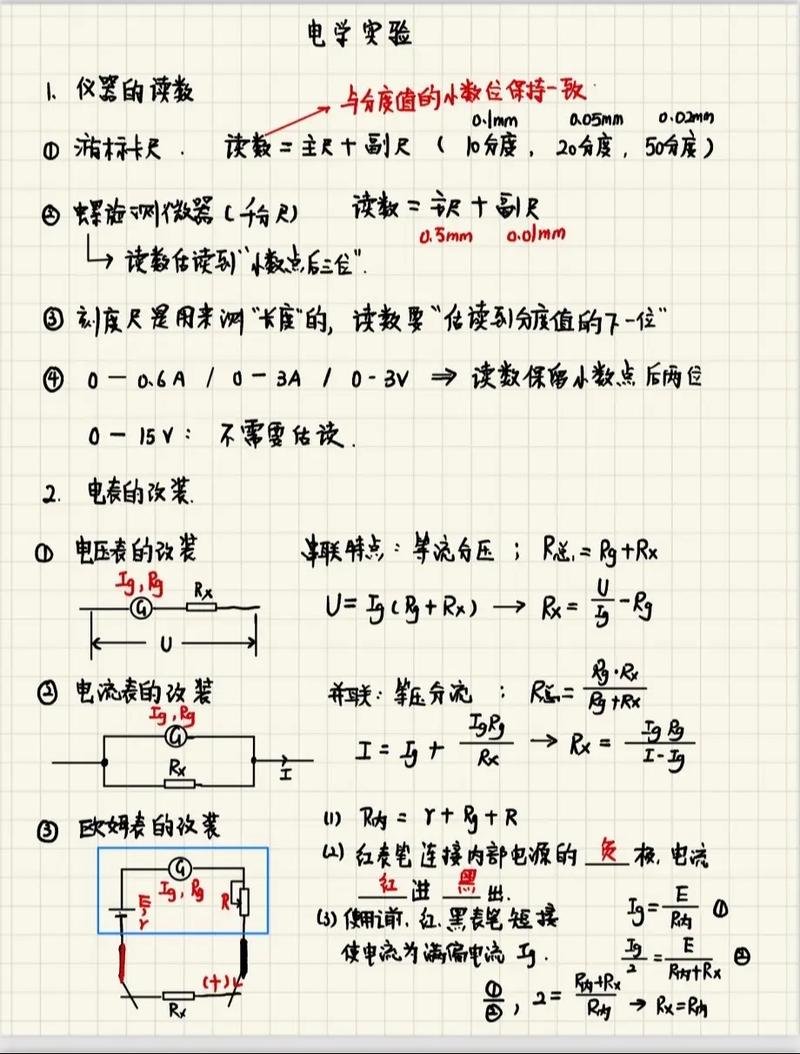 电学实验
1. 仪器的读数
与分度值的小数位保持一致
0.1mm 0.05mm 0.02mm
① 游标卡尺. 读数=主尺+副尺 (10分度, 20分度, 50分度)
② 螺旋测微器(千分尺) 读数=主尺+副尺
0.5mm 0.01mm
↳ 读数估读到"小数点后三位".
③ 刻度尺是用来测"长度"的, 读数要"估读到分度值的下一位"
④ 0-0.6A / 0-3A / 0-3V ⇒ 读数保留小数点后两位
0-15V: 不需要估读.
2. 电表的改装.
① 电压表的改装 串联特点: 等流分压; R总=Rg+Rx
Ig, Rg Rx
G
U=Ig(Rg+Rx) → Rx=U/Ig-Rg
U
② 电流表的改装 并联: 等压分流; R总=Rg·Rx/Rg+Rx
Ig, Rg
G
Rx
I
I=Ig+IgRg/Rx → Rx=IgRg/I-Ig
③ 欧姆表的改装 (1) R内=r+Rg+R
G
Ig, Rg
R
E, r
(+)
Rx
(2) 红表笔连接内部电源的 负 极, 电流
红 进 黑 出.
(3) 使用前, 红、黑表笔短接
使电流为满偏电流 Ig.
Ig=E/R内 ①
Ig/2=E/R内+Rx ②
①/②, 2=R内+Rx/R内 → Rx=R内